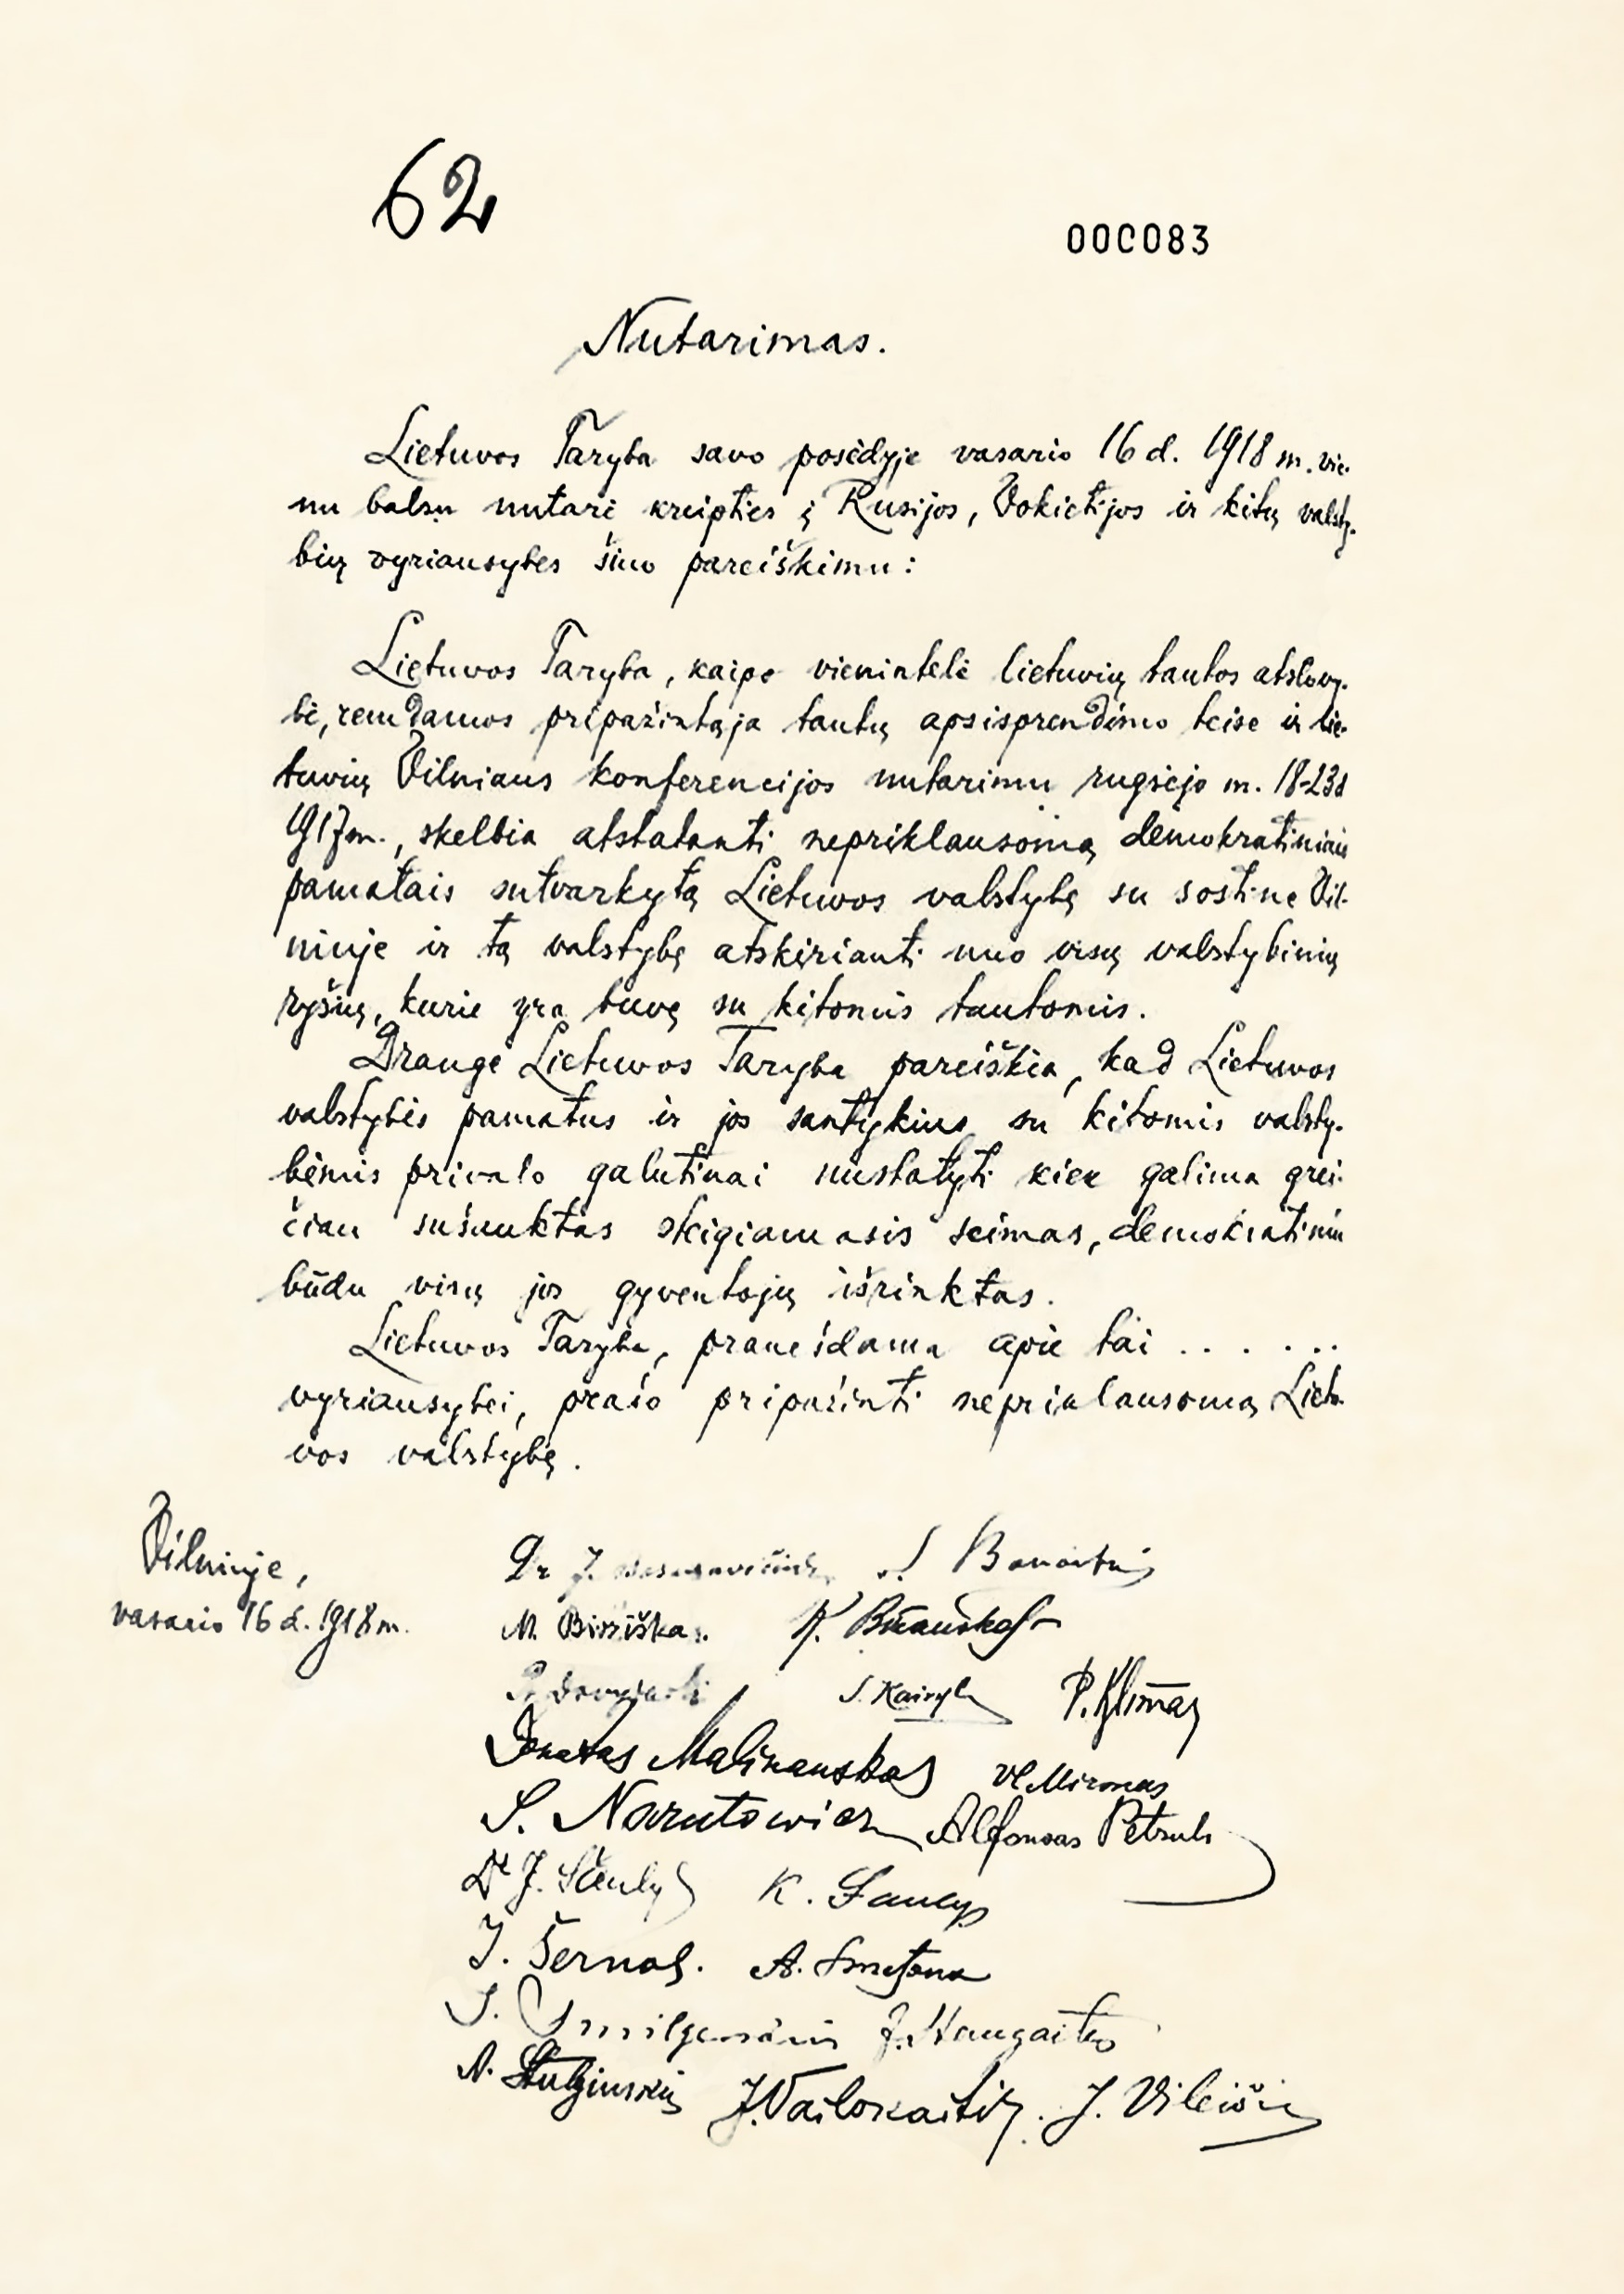 62
000083
Nutarimas.
Lietuvos Taryba savo posėdyje vasario 16 d. 1918 m. vie-
nu balsu nutarė kreipties į Rusijos, Vokietijos ir kitų valsty-
bių vyriausybes šiuo pareiškimu:
Lietuvos Taryba, kaipo vienintelė lietuvių tautos atstovy-
bė, remdamos pripažintąja tautų apsisprendimo teise ir lie-
tuvių Vilniaus konferencijos nutarimu rugsėjo m. 18-23 d
1917 m., skelbia atstatanti nepriklausomą demokratiniais
pamatais sutvarkytą Lietuvos valstybę su sostine Vil-
niuje ir tą valstybę atskirianti nuo visų valstybinių
ryšių, kurie yra buvę su kitomis tautomis.
Drauge Lietuvos Taryba pareiškia, kad Lietuvos
valstybės pamatus ir jos santykius su kitomis valsty-
bėmis privalo galutinai nustatyti kiek galima grei-
čiau sušauktas steigiamasis seimas, demokratiniu
būdu visų jos gyventojų išrinktas.
Lietuvos Taryba, pranešdama apie tai . . . . . .
vyriausybei, prašo pripažinti nepriklausomą Lietu-
vos valstybę.
Vilniuje,
vasario 16 d. 1918 m.
Dr J. Basanavičius S. Banaitis
M. Biržiška. K. Bizauskas
P. Dovydaitis S. Kairys P. Klimas
Donatas Malinauskas Vl Mironas
S. Narutowicz Alfonsas Petrulis
Dr J. Šaulys K. Šaulys
J. Šernas. A. Smetona
J. Smilgevičius J. Staugaitis
A. Stulginskis J. Vailokaitis. J. Vileišis